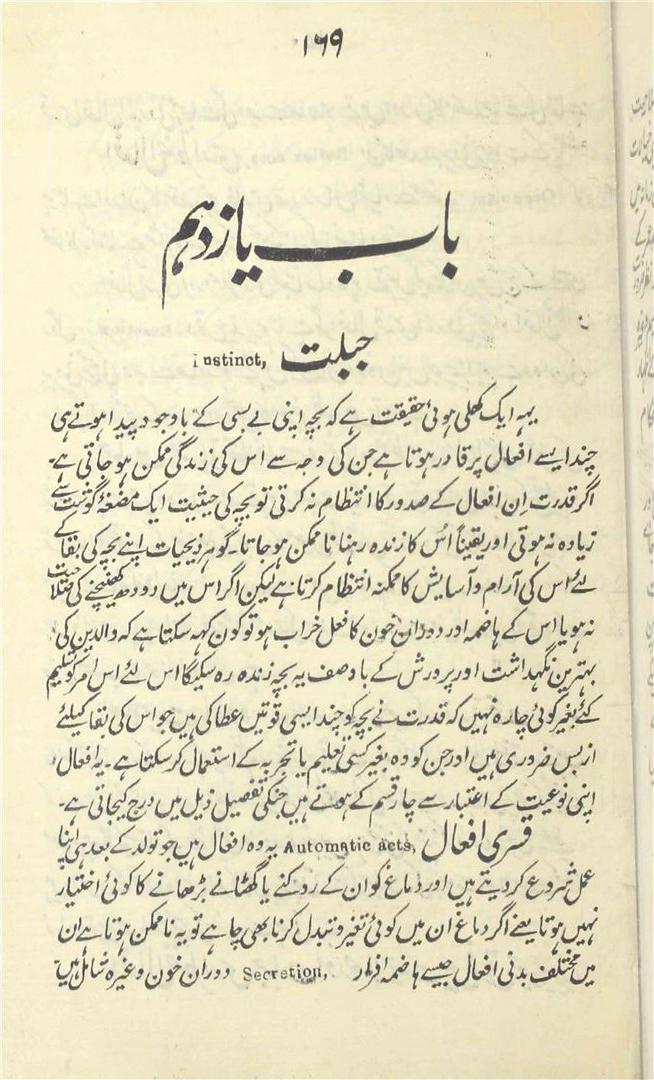 ۱۶۹
باب یازدہم
جبلت Instinct,
یہہ ایک کھلی ہوئی حقیقت ہے کہ بچہ اپنی بے بسی کے باوجود پیدا ہوتے ہی
چند ایسے افعال پر قادر ہوتا ہے جن کی وجہ سے اس کی زندگی ممکن ہو جاتی ہے۔
اگر قدرت اِن افعال کے صدور کا انتظام نہ کرتی تو بچہ کی حیثیت ایک مضغۂ گوشت سے
زیادہ نہ ہوتی اور یقیناً اُس کا زندہ رہنا ناممکن ہو جاتا۔ گو ہر ذیحیات اپنے بچہ کی بقا کے
لئے اس کی آرام و آسایش کا ممکنہ انتظام کرتا ہے لیکن اگر اس میں دودھ کھینچنے کی صلاحیت
نہ ہو یا اس کے ہاضمہ اور دوران خون کا فعل خراب ہو تو کون کہہ سکتا ہے کہ والدین کی
بہترین نگہداشت اور پرورش کے باوصف یہ بچہ زندہ رہ سکیگا اس لئے اس امر کو تسلیم
کئے بغیر کوئی چارہ نہیں کہ قدرت نے بچہ کو چند ایسی قوتیں عطا کی ہیں جو اس کی بقا کیلئے
از بس ضروری ہیں اور جن کو وہ بغیر کسی تعلیم یا تجربہ کے استعمال کر سکتا ہے۔ یہ افعال
اپنی نوعیت کے اعتبار سے چار قسم کے ہوتے ہیں جنکی تفصیل ذیل میں درج کیجاتی ہے۔
قسری افعال Automatic acts, یہ وہ افعال ہیں جو تولد کے بعد ہی اپنا
عمل شروع کر دیتے ہیں اور دماغ کو ان کے روکنے یا گھٹانے بڑھانے کا کوئی اختیار
نہیں ہوتا یعنے اگر دماغ ان میں کوئی تغیر و تبدل کرنا بھی چاہے تو یہ ناممکن ہوتا ہے ان
میں مختلف بدنی افعال جیسے ہاضمہ افراز Secretion, دوران خون وغیرہ شامل ہیں